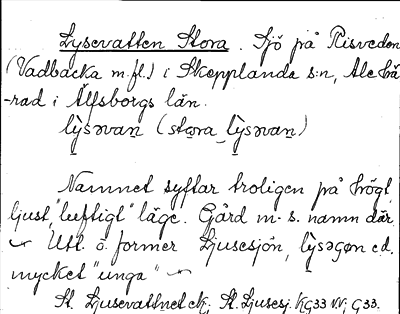 Lysevatten Stora. Sjö på Risveden
(Vadbacka m.fl.) i Skepplanda s:n, Ale hä
-rad i Älfsborgs län.
lỳsəvan̲ (sto̲ra lỳsəvan̲)
Namnet syftar troligen på högt,
ljust, "luftigt" läge. Gård m. s. namn där.
Utt. o. former Ljusesjön, ly̲səʂøn e.d.
mycket "unga"
St. Ljusevattnet ek; St. Ljusesj. KG33 N.V; G33.